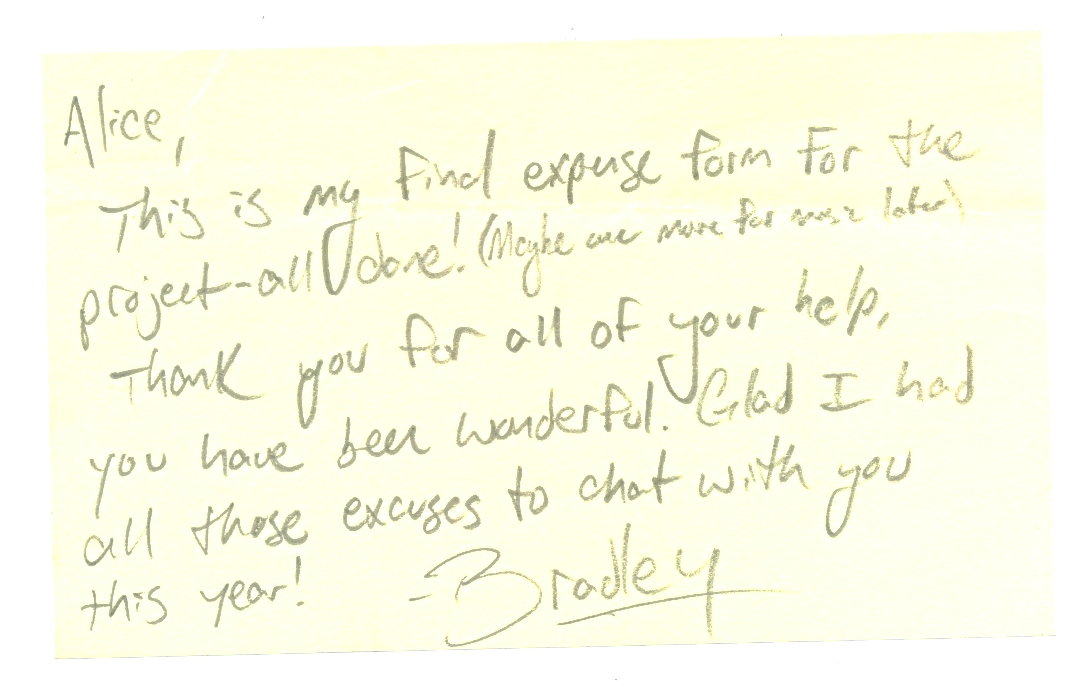 Alice,
This is my final expense form for the
project-all done! (Maybe one more for music later)
Thank you for all of your help,
you have been wonderful. Glad I had
all those excuses to chat with you
this year! -Bradley